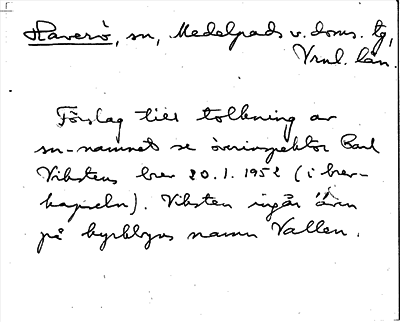 Haverö, sn, Medelpads v. doms. tg,
Vrnl. län.
Förslag till tolkning av
sn-namnet se överinspektor Carl
Vikstens brev 20.1.1952 (i brev-
kapseln). Viksten ingår även
på kyrkbyns namn Vallen.